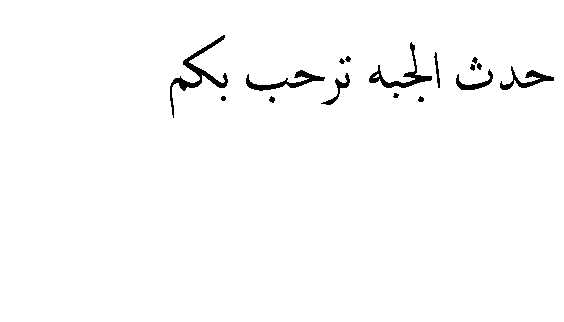 حدث الجبه ترحب بكم